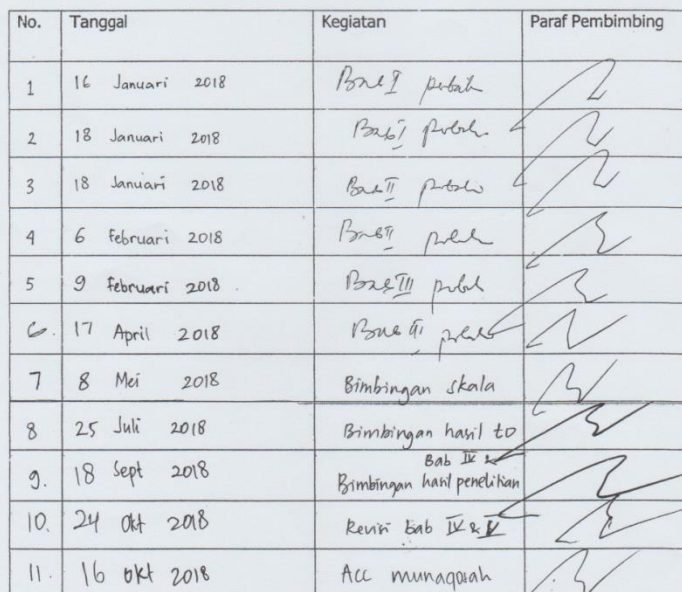 No. Tanggal Kegiatan Paraf Pembimbing
1 16 Januari 2018 Bab I
2 18 Januari 2018 Bab I
3 18 Januari 2018 Bab II
4 6 Februari 2018 Bab II
5 9 februari 2018 . Bab III
6. 17 April 2018 Bab III
7 8 Mei 2018 Bimbingan skala
8 25 Juli 2018 Bimbingan hasil to
Bab IV &
9. 18 Sept 2018 Bimbingan hasil penelitian
10. 24 Okt 2018 Revisi Bab IV & V
11. 16 Okt 2018 Acc munaqosah